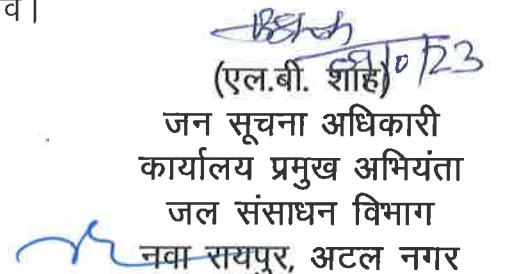 व।
(एल.बी. शाह)
जन सूचना अधिकारी
कार्यालय प्रमुख अभियंता
जल संसाधन विभाग
नवा रायपुर, अटल नगर